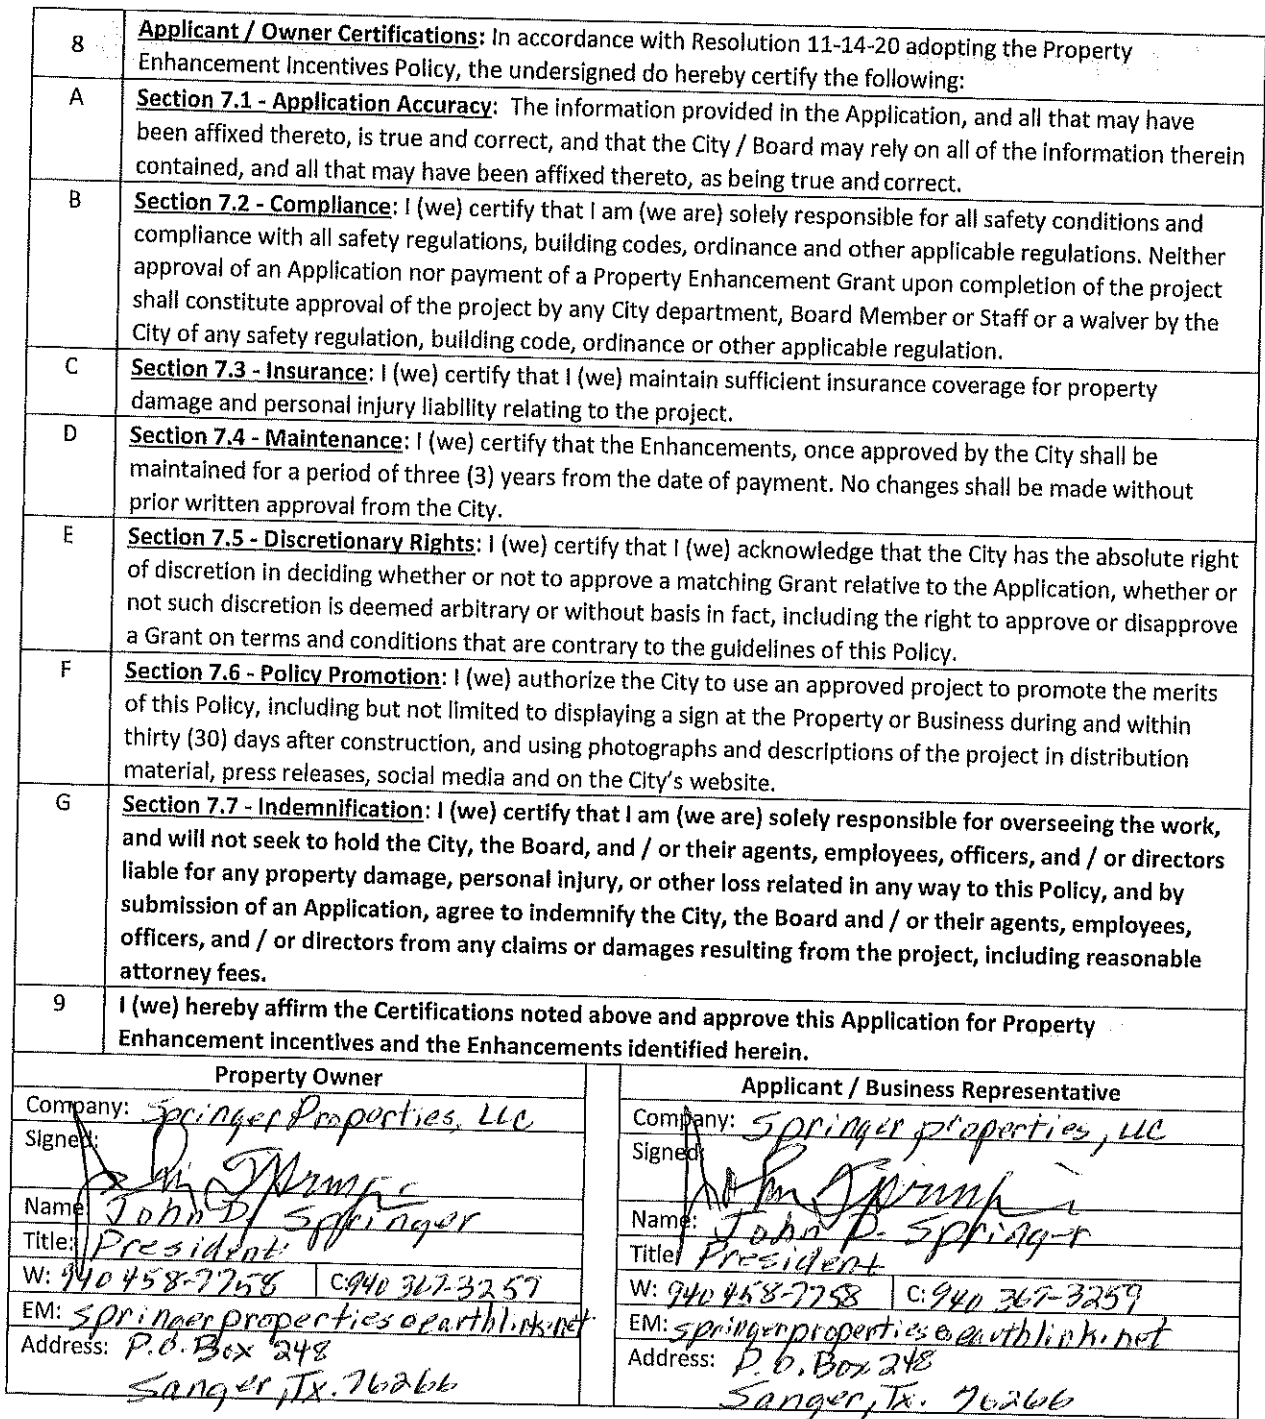 8 Applicant / Owner Certifications: In accordance with Resolution 11-14-20 adopting the Property
Enhancement Incentives Policy, the undersigned do hereby certify the following:
A Section 7.1 - Application Accuracy: The information provided in the Application, and all that may have
been affixed thereto, is true and correct, and that the City / Board may rely on all of the information therein
contained, and all that may have been affixed thereto, as being true and correct.
B Section 7.2 - Compliance: I (we) certify that I am (we are) solely responsible for all safety conditions and
compliance with all safety regulations, building codes, ordinance and other applicable regulations. Neither
approval of an Application nor payment of a Property Enhancement Grant upon completion of the project
shall constitute approval of the project by any City department, Board Member or Staff or a waiver by the
City of any safety regulation, building code, ordinance or other applicable regulation.
C Section 7.3 - Insurance: I (we) certify that I (we) maintain sufficient insurance coverage for property
damage and personal injury liability relating to the project.
D Section 7.4 - Maintenance: I (we) certify that the Enhancements, once approved by the City shall be
maintained for a period of three (3) years from the date of payment. No changes shall be made without
prior written approval from the City.
E Section 7.5 - Discretionary Rights: I (we) certify that I (we) acknowledge that the City has the absolute right
of discretion in deciding whether or not to approve a matching Grant relative to the Application, whether or
not such discretion is deemed arbitrary or without basis in fact, including the right to approve or disapprove
a Grant on terms and conditions that are contrary to the guidelines of this Policy.
F Section 7.6 - Policy Promotion: I (we) authorize the City to use an approved project to promote the merits
of this Policy, including but not limited to displaying a sign at the Property or Business during and within
thirty (30) days after construction, and using photographs and descriptions of the project in distribution
material, press releases, social media and on the City's website.
G Section 7.7 - Indemnification: I (we) certify that I am (we are) solely responsible for overseeing the work,
and will not seek to hold the City, the Board, and / or their agents, employees, officers, and / or directors
liable for any property damage, personal injury, or other loss related in any way to this Policy, and by
submission of an Application, agree to indemnify the City, the Board and / or their agents, employees,
officers, and / or directors from any claims or damages resulting from the project, including reasonable
attorney fees.
9 I (we) hereby affirm the Certifications noted above and approve this Application for Property
Enhancement incentives and the Enhancements identified herein.
Property Owner
Company: Springer Properties, LLC
Signed:
Name: John D. Springer
Title: President
W: 940 458-7758 C: 940 367-3259
EM: springerproperties@earthlink.net
Address: P.O. Box 248
Sanger, Tx. 76266
Applicant / Business Representative
Company: Springer properties, LLC
Signed:
Name: John D. Springer
Title: President
W: 940 458-7758 C: 940 367-3259
EM: springerproperties@earthlink.net
Address: P.O. Box 248
Sanger, Tx. 76266